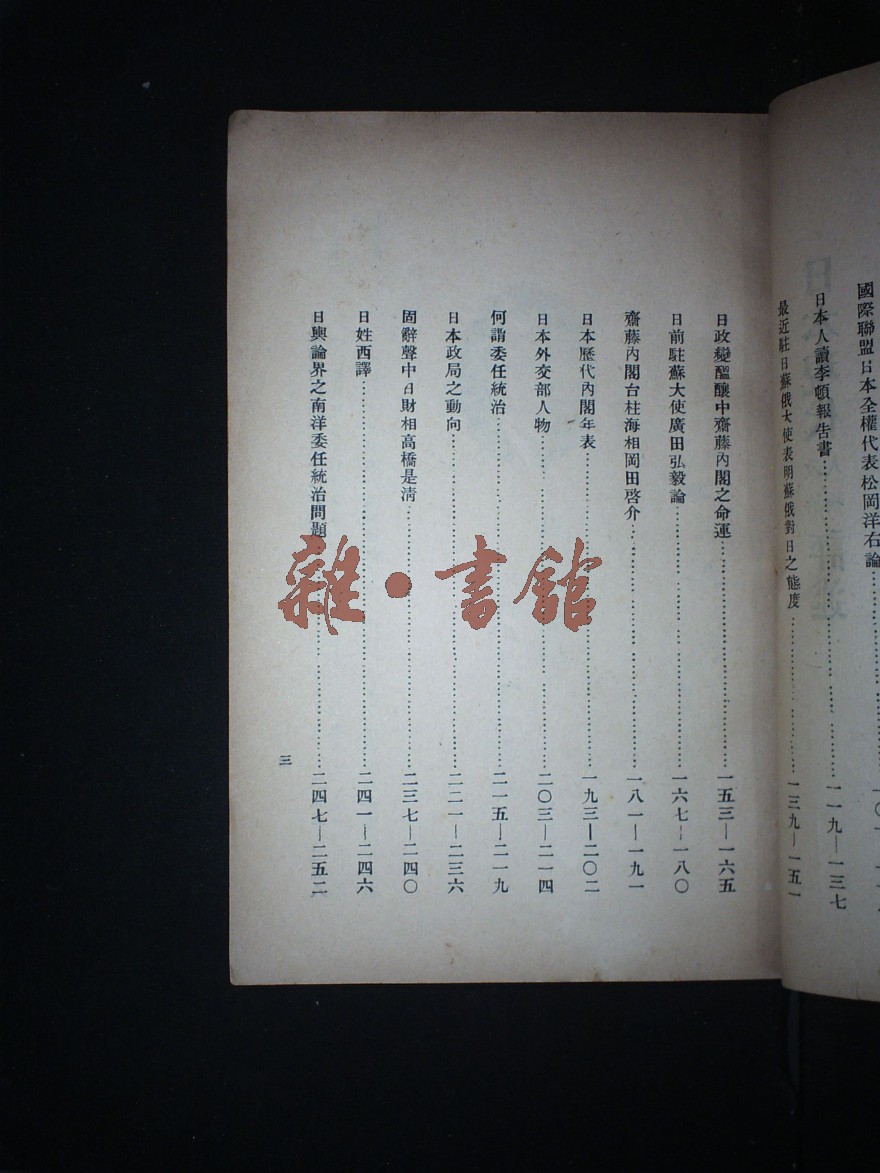 國際聯盟日本全權代表松岡洋右論
日本人讀李頓報告書 一一九—一三七
最近駐日蘇俄大使表明蘇俄對日之態度 一三九—一五一
日政變醞釀中齋藤內閣之命運 一五三—一六五
日前駐蘇大使廣田弘毅論 一六七—一八〇
齋藤內閣台柱海相岡田啓介 一八一—一九一
日本歷代內閣年表 一九三—二〇二
日本外交部人物 二〇三—二一四
何謂委任統治 二一五—二一九
日本政局之動向 二二一—二三六
固辭聲中日財相高橋是淸 二三七—二四〇
日姓西譯 二四一—二四六
日輿論界之南洋委任統治問題 二四七—二五二
三
雜·書館